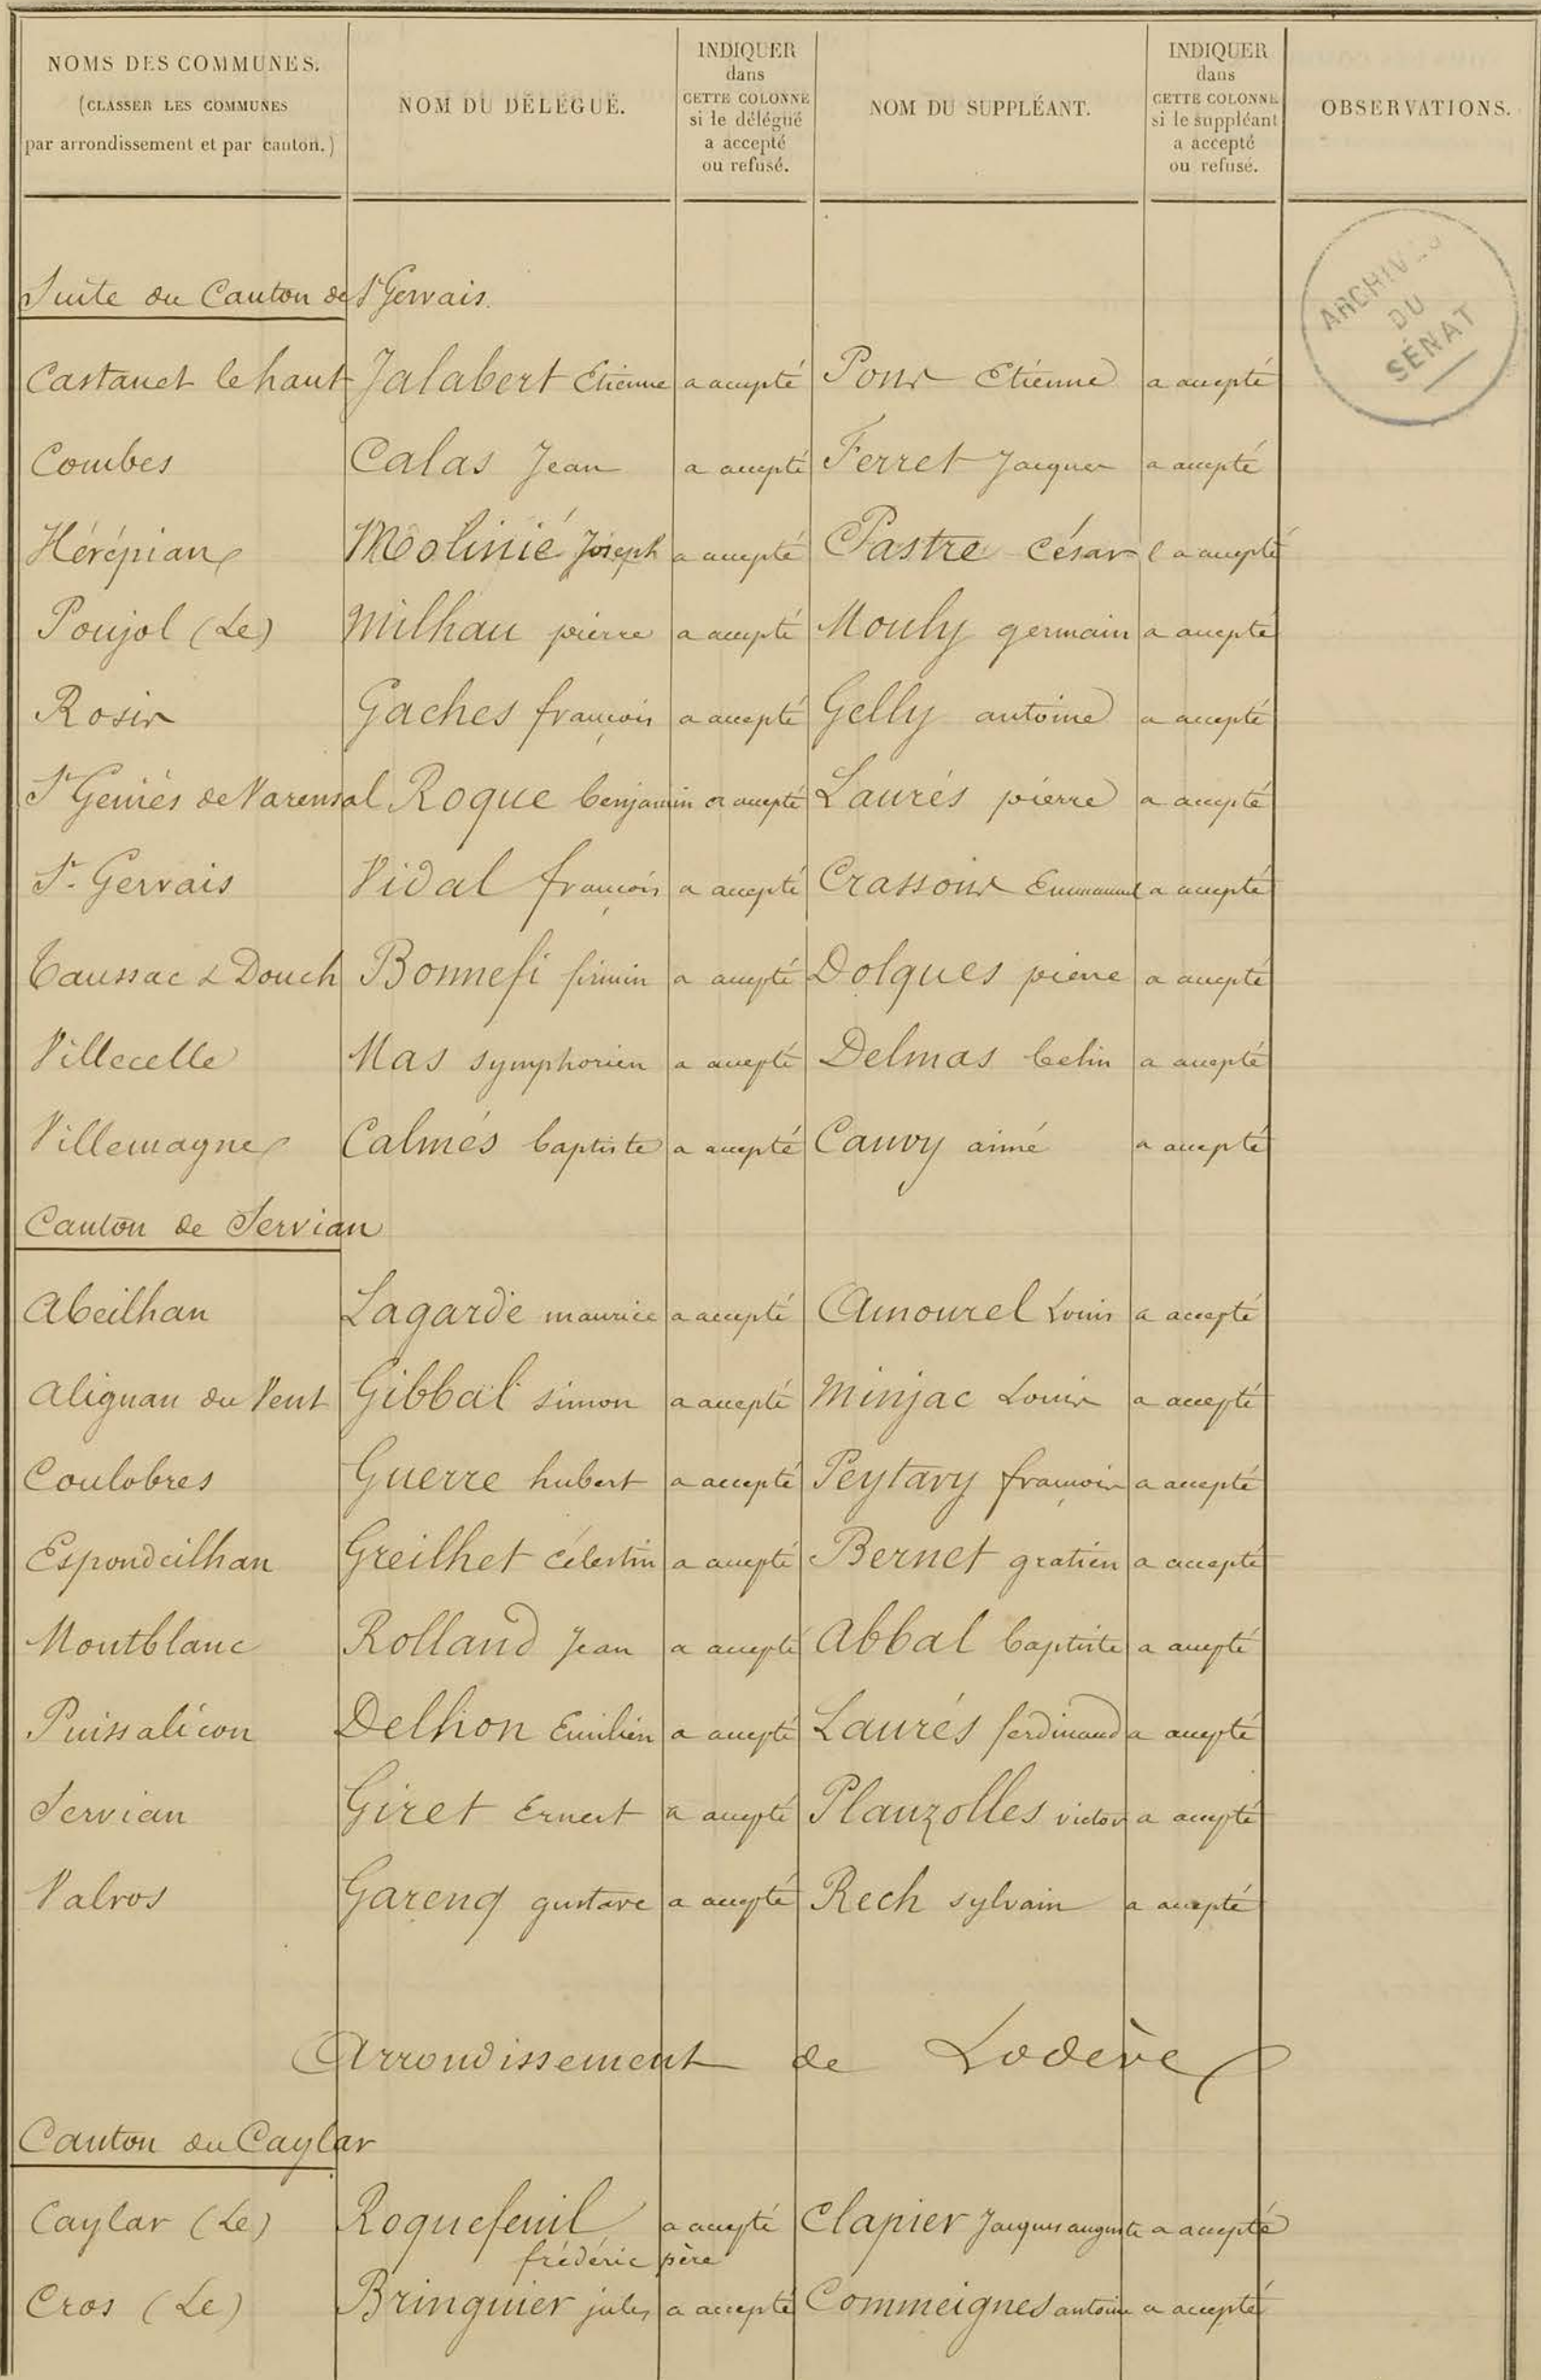 NOMS DES COMMUNES.
(CLASSER LES COMMUNES
par arrondissement et par canton.)
NOM DU DÉLÉGUÉ.
INDIQUER
dans
CETTE COLONNE
si le délégué
a accepté
ou refusé.
NOM DU SUPPLÉANT.
INDIQUER
dans
CETTE COLONNE
si le suppléant
a accepté
ou refusé.
OBSERVATIONS.
ARCHIVES
DU
SÉNAT
Suite du Canton de St Gervais.
Castanet le haut Jalabert Etienne a accepté Pons Etienne a accepté
Combes Calas Jean a accepté Ferret Jacques a accepté
Hérépian Molinié Joseph a accepté Pastre César a accepté
Poujol (Le) Milhau pierre a accepté Mouly germain a accepté
Rosis Gaches françois a accepté Gelly antoine a accepté
St Geniés de Varensal Roque benjamin a accepté Laurés pierre a accepté
St Gervais Vidal françois a accepté Crassous Emmanuel a accepté
Taussac & Douch Bonnefi firmin a accepté Dolques pierre a accepté
Villecelle Mas symphorien a accepté Delmas belin a accepté
Villemagne Calmés baptiste a accepté Cauvy aimé a accepté
Canton de Servian
Abeilhan Lagarde maurice a accepté Amourel Louis a accepté
Alignan du Vent Gibbal simon a accepté Minjac Louis a accepté
Coulobres Guerre hubert a accepté Peytavy françois a accepté
Espondeilhan Greilhet célestin a accepté Bernet gratien a accepté
Montblanc Rolland Jean a accepté Abbal baptiste a accepté
Puissalicon Delhon Emilien a accepté Laurés ferdinand a accepté
Servian Giret Ernest a accepté Planzolles victor a accepté
Valros Garenq gustave a accepté Rech sylvain a accepté
Arrondissement de Lodève
Canton du Caylar
Caylar (Le) Roquefeuil a accepté Clapier Jacques auguste a accepté
frédéric père
Cros (Le) Bringuier jules a accepté Commeignes antoine a accepté